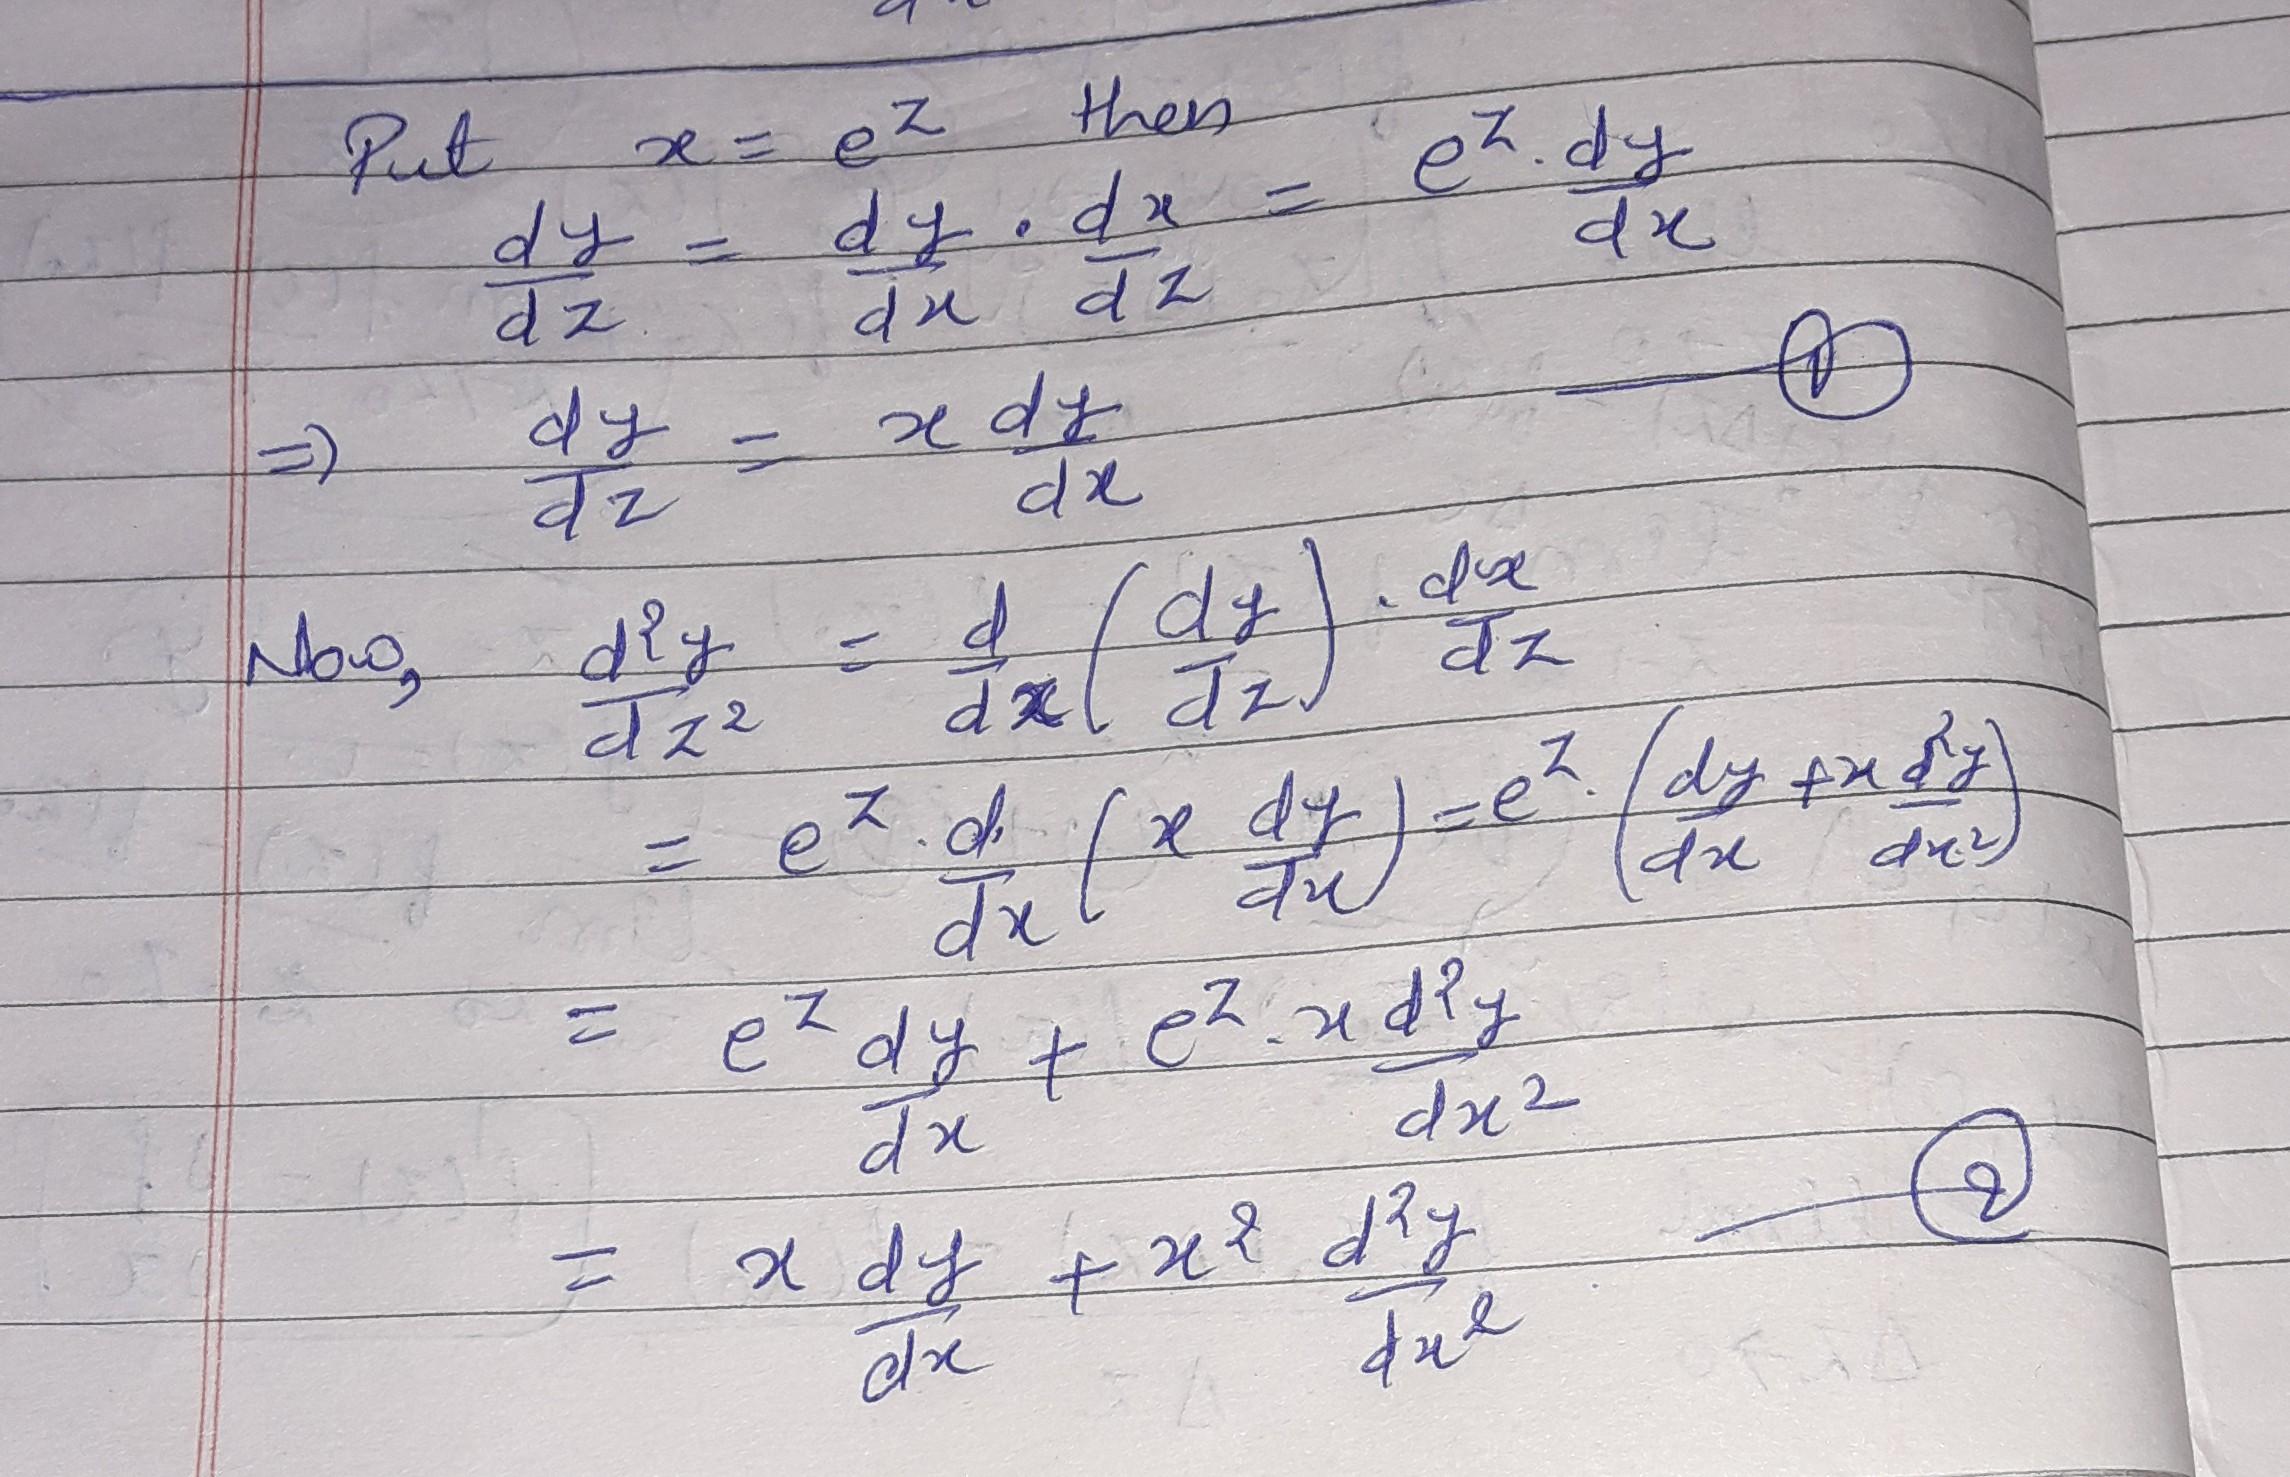 Put x = e^z then
dy/dz = dy/dx . dx/dz = e^z . dy/dx
=> dy/dz = x dy/dx — ①
Now, d²y/dz² = d/dx (dy/dz) . dx/dz
= e^z . d/dx (x dy/dx) = e^z . (dy/dx + x d²y/dx²)
= e^z dy/dx + e^z . x d²y/dx²
= x dy/dx + x² d²y/dx² — ②